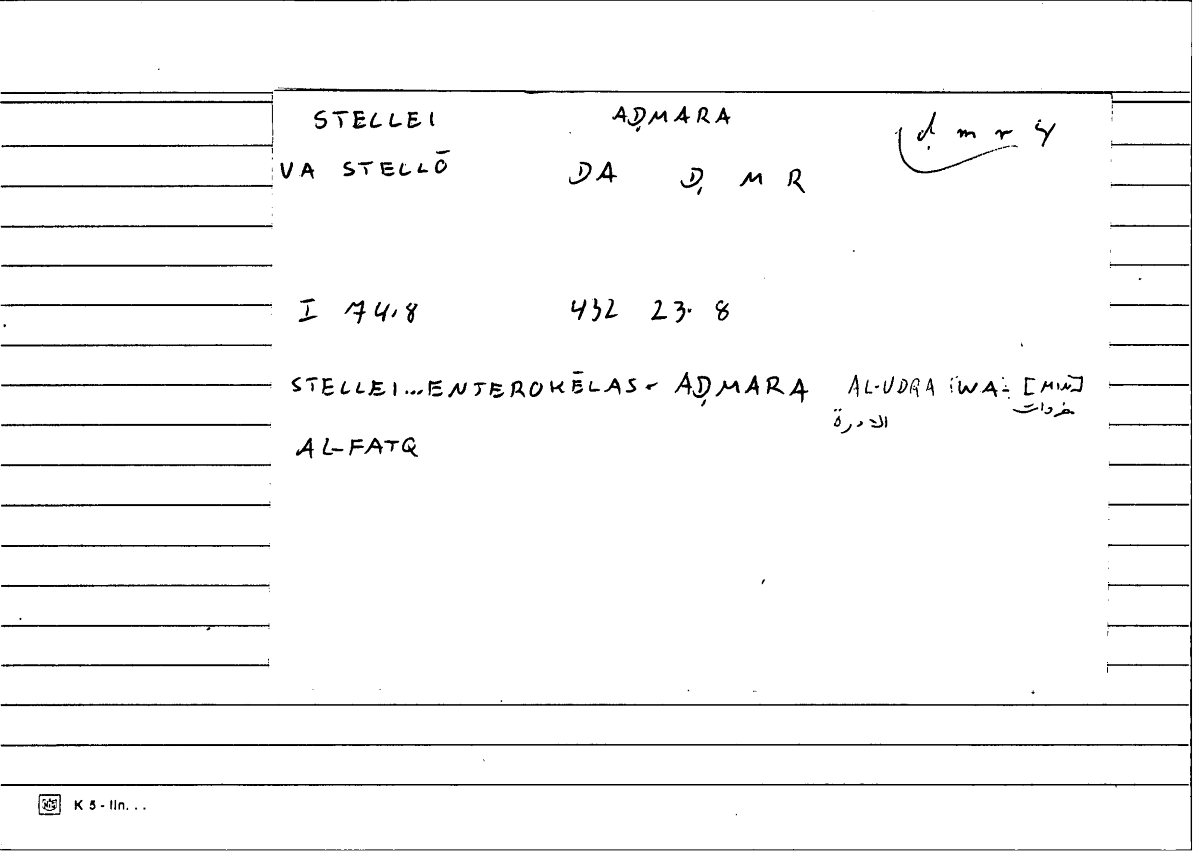 STELLEI AḌMARA ḍ m r
VA STELLŌ DA Ḍ M R
I 74.8 432 23. 8
STELLEI...ENTEROKĒLAS - AḌMARA AL-UDRA WA- [MIN]
الادرة
AL-FATQ
K 5 - lin. . .